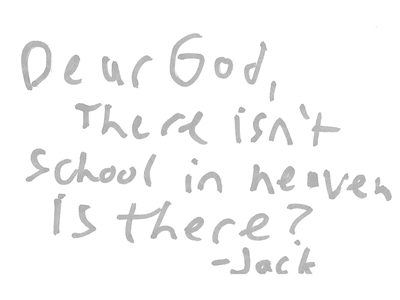 Dear God,
There isn't
school in heaven
Is there?
-Jack